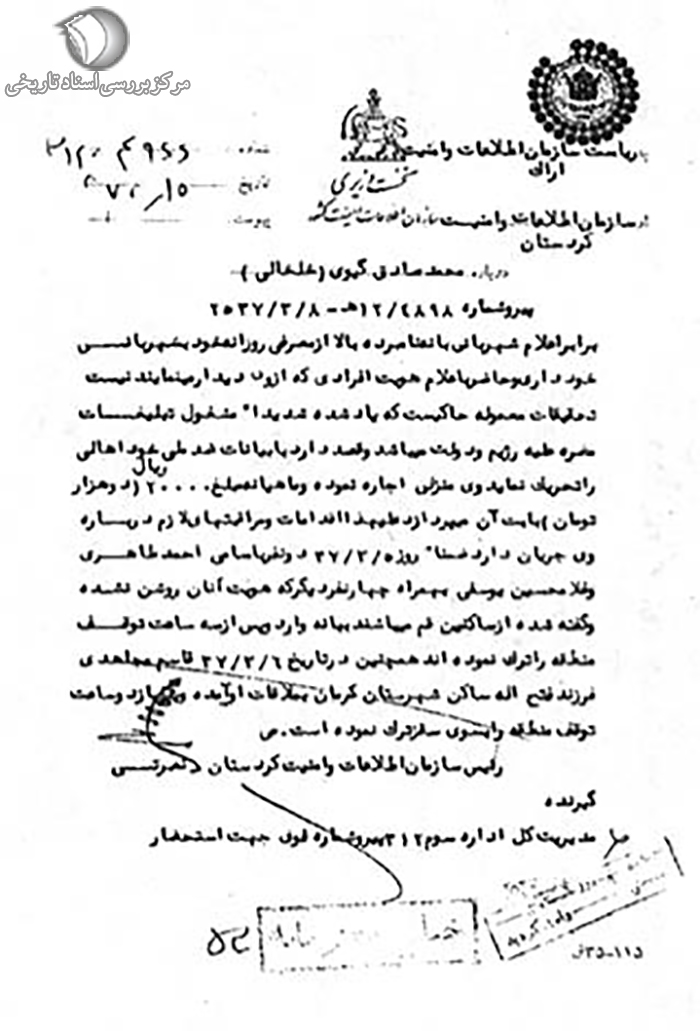 مرکز بررسی اسناد تاریخی
بریاست سازمان اطلاعات و امنیت
اراک
شماره
نخست وزیری
تاریخ
سازمان اطلاعات و امنیت کشور
پیوست
از سازمان اطلاعات و امنیت
کردستان
درباره محمد صادق گیوی (خلخالی)
پیرو شماره ۱۲/٤۸۹۸ه‍ - ۲۵۳۷/۳/۸
برابر اعلام شهربانی بانه نامبرده بالا از معرفی روزانه خود بشهربانی
خود داری و حاضر باعلام هویت افرادی که از وی دیدار مینمایند نیست
تحقیقات معموله حاکیست که یاد شده شدیدا" مشغول تبلیغات
مضره علیه رژیم و دولت میباشد و قصد دارد با بیانات ضد ملی خود اهالی
را تحریک نماید وی منزلی اجاره نموده و ماهیانه مبلغ ۲۰۰۰۰ ریال (دو هزار
تومان) بابت آن میپردازد علیهذا اقدامات و مراقبتهای لازم درباره
وی جریان دارد ضمنا" روز ۳۷/۳/۵ دو نفر باسامی احمد طاهری
و غلامحسین یوسفی بهمراه چهار نفر دیگر که هویت آنان روشن نشده
و گفته شده از ساکنین قم میباشند ببانه وارد و پس از سه ساعت توقف
منطقه را ترک نموده اند همچنین در تاریخ ۳۷/۳/۶ قاسم مجاهدی
فرزند فتح اله ساکن شهرستان کرمان بملاقات او آمده و بعد از دو ساعت
توقف منطقه را بسوی سقز ترک نموده است. ص
رئیس سازمان اطلاعات و امنیت کردستان
گیرنده
مدیریت کل اداره سوم ۳۱۲ پیرو شماره فوق جهت استحضار
۳۵-۱۱۵